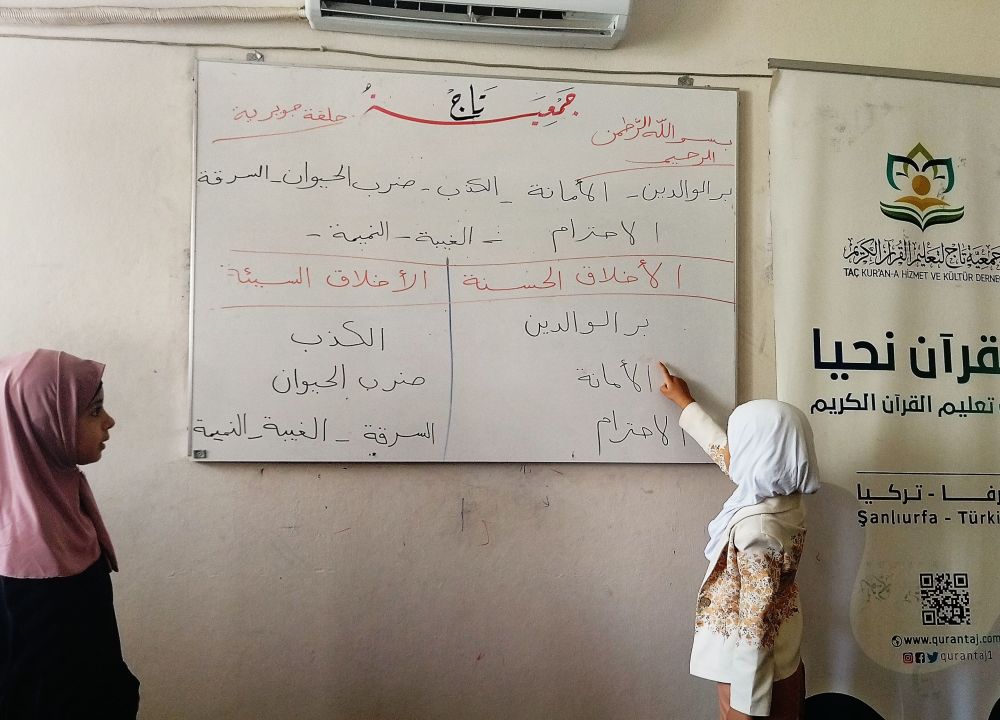 جمعية تاج
حلقة جويرية
بسم الله الرحمن
الرحيم
بر الوالدين - الأمانة - الكذب - ضرب الحيوان - السرقة
الاحترام - الغيبة - النميمة -
الأخلاق الحسنة
الأخلاق السيئة
بر الوالدين
الكذب
الأمانة
ضرب الحيوان
الاحترام
السرقة - الغيبة - النميمة
جمعية تاج لتعليم القرآن الكريم
TAÇ KUR'AN-A HİZMET VE KÜLTÜR DERNE
قرآن نحيا
تعليم القرآن الكريم
رفا - تركيا
Şanlıurfa - Türki
www.qurantaj.com
qurantaj1